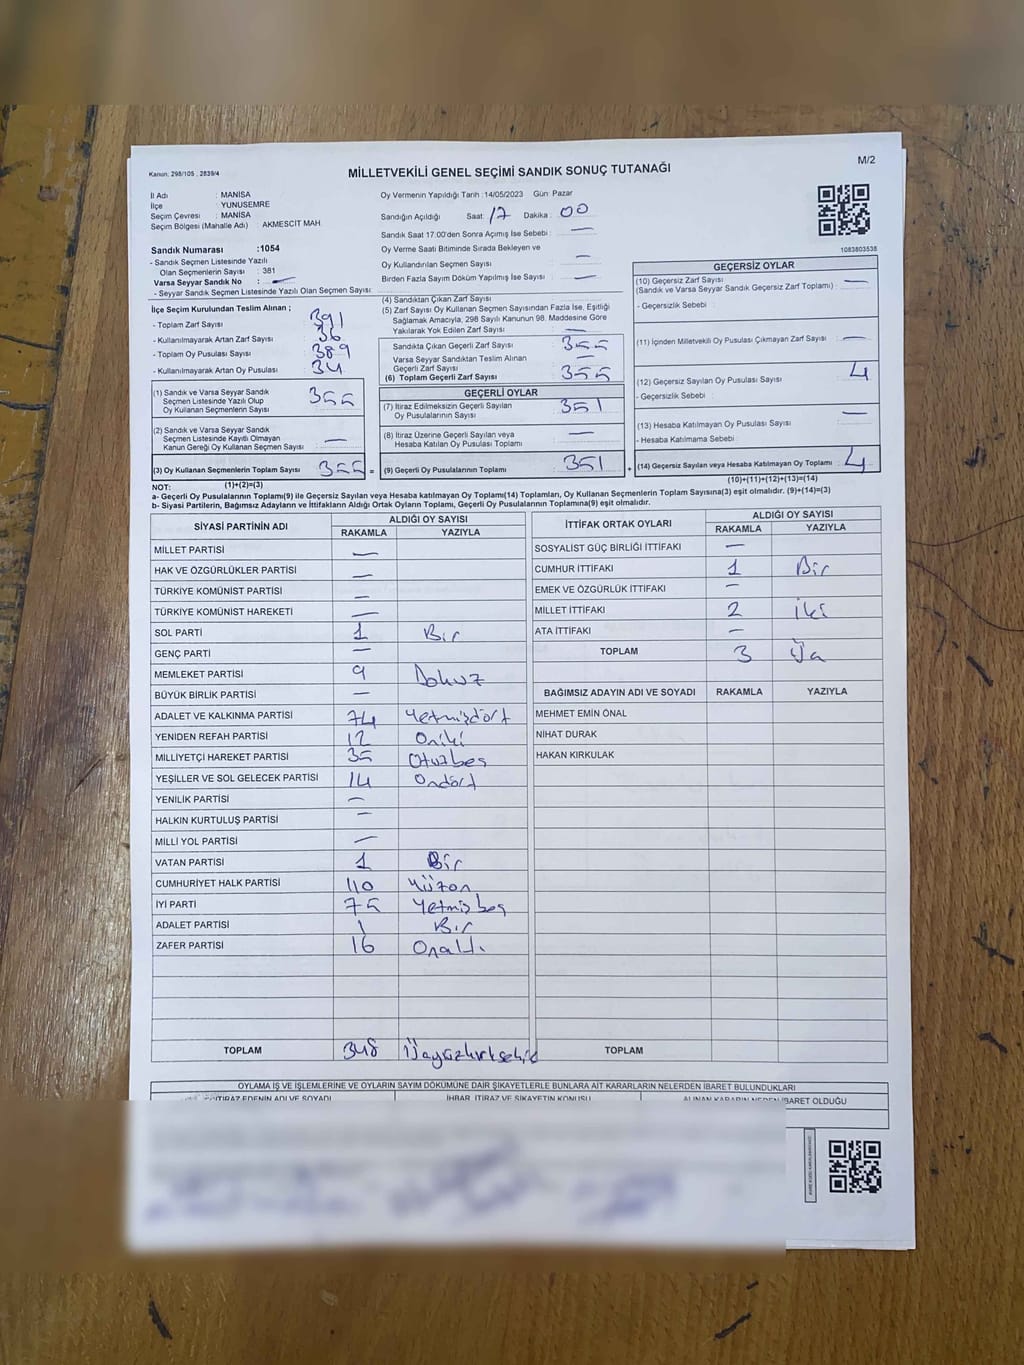 Kanun: 298/105 , 2839/4
MİLLETVEKİLİ GENEL SEÇİMİ SANDIK SONUÇ TUTANAĞI
M/2
İl Adı : MANİSA
İlçe : YUNUSEMRE
Seçim Çevresi : MANİSA
Seçim Bölgesi (Mahalle Adı) AKMESCİT MAH.
Oy Vermenin Yapıldığı Tarih :14/05/2023 Gün: Pazar
Sandığın Açıldığı Saat: 17 Dakika : 00
Sandık Saat 17:00'den Sonra Açımış İse Sebebi : —
Oy Verme Saati Bitiminde Sırada Bekleyen ve
Oy Kullandırılan Seçmen Sayısı —
Birden Fazla Sayım Döküm Yapılmış İse Sayısı —
1083803538
Sandık Numarası :1054
- Sandık Seçmen Listesinde Yazılı
Olan Seçmenlerin Sayısı : 381
Varsa Seyyar Sandık No : —
- Seyyar Sandık Seçmen Listesinde Yazılı Olan Seçmen Sayısı:
İlçe Seçim Kurulundan Teslim Alınan ;
- Toplam Zarf Sayısı 391
- Kullanılmayarak Artan Zarf Sayısı 36
- Toplam Oy Pusulası Sayısı 389
- Kullanılmayarak Artan Oy Pusulası 34
(1) Sandık ve Varsa Seyyar Sandık
Seçmen Listesinde Yazılı Olup
Oy Kullanan Seçmenlerin Sayısı 355
(2) Sandık ve Varsa Seyyar Sandık
Seçmen Listesinde Kayıtlı Olmayan
Kanun Gereği Oy Kullanan Seçmen Sayısı —
(3) Oy Kullanan Seçmenlerin Toplam Sayısı 355 =
(4) Sandıktan Çıkan Zarf Sayısı
(5) Zarf Sayısı Oy Kullanan Seçmen Sayısından Fazla İse, Eşitliği
Sağlamak Amacıyla, 298 Sayılı Kanunun 98. Maddesine Göre
Yakılarak Yok Edilen Zarf Sayısı —
Sandıkta Çıkan Geçerli Zarf Sayısı 355
Varsa Seyyar Sandıktan Teslim Alınan
Geçerli Zarf Sayısı —
(6) Toplam Geçerli Zarf Sayısı 355
GEÇERLİ OYLAR
(7) İtiraz Edilmeksizin Geçerli Sayılan
Oy Pusulalarının Sayısı 351
(8) İtiraz Üzerine Geçerli Sayılan veya
Hesaba Katılan Oy Pusulası Toplamı —
(9) Geçerli Oy Pusulalarının Toplamı 351 +
GEÇERSİZ OYLAR
(10) Geçersiz Zarf Sayısı
(Sandık ve Varsa Seyyar Sandık Geçersiz Zarf Toplamı) : —
- Geçersizlik Sebebi
(11) İçinden Milletvekili Oy Pusulası Çıkmayan Zarf Sayısı —
(12) Geçersiz Sayılan Oy Pusulası Sayısı 4
- Geçersizlik Sebebi :
(13) Hesaba Katılmayan Oy Pusulası Sayısı —
- Hesaba Katılmama Sebebi :
(14) Geçersiz Sayılan veya Hesaba Katılmayan Oy Toplamı 4
NOT: (1)+(2)=(3)
(10)+(11)+(12)+(13)=(14)
a- Geçerli Oy Pusulalarının Toplamı(9) ile Geçersiz Sayılan veya Hesaba katılmayan Oy Toplamı(14) Toplamları, Oy Kullanan Seçmenlerin Toplam Sayısına(3) eşit olmalıdır. (9)+(14)=(3)
b- Siyasi Partilerin, Bağımsız Adayların ve İttifakların Aldığı Ortak Oyların Toplamı, Geçerli Oy Pusulalarının Toplamına(9) eşit olmalıdır.
SİYASİ PARTİNİN ADI ALDIĞI OY SAYISI
RAKAMLA YAZIYLA
MİLLET PARTİSİ —
HAK VE ÖZGÜRLÜKLER PARTİSİ —
TÜRKİYE KOMÜNİST PARTİSİ —
TÜRKİYE KOMÜNİST HAREKETİ —
SOL PARTİ 1 Bir
GENÇ PARTİ —
MEMLEKET PARTİSİ 9 Dokuz
BÜYÜK BİRLİK PARTİSİ —
ADALET VE KALKINMA PARTİSİ 74 Yetmişdört
YENİDEN REFAH PARTİSİ 12 Oniki
MİLLİYETÇİ HAREKET PARTİSİ 35 Otuzbeş
YEŞİLLER VE SOL GELECEK PARTİSİ 14 Ondört
YENİLİK PARTİSİ —
HALKIN KURTULUŞ PARTİSİ —
MİLLİ YOL PARTİSİ —
VATAN PARTİSİ 1 Bir
CUMHURİYET HALK PARTİSİ 110 Yüzon
İYİ PARTİ 75 Yetmişbeş
ADALET PARTİSİ 1 Bir
ZAFER PARTİSİ 16 Onaltı
TOPLAM 348 Üçyüzkırksekiz
İTTİFAK ORTAK OYLARI ALDIĞI OY SAYISI
RAKAMLA YAZIYLA
SOSYALİST GÜÇ BİRLİĞİ İTTİFAKI —
CUMHUR İTTİFAKI 1 Bir
EMEK VE ÖZGÜRLÜK İTTİFAKI —
MİLLET İTTİFAKI 2 İki
ATA İTTİFAKI —
TOPLAM 3 Üç
BAĞIMSIZ ADAYIN ADI VE SOYADI RAKAMLA YAZIYLA
MEHMET EMİN ÖNAL
NİHAT DURAK
HAKAN KIRKULAK
TOPLAM
OYLAMA İŞ VE İŞLEMLERİNE VE OYLARIN SAYIM DÖKÜMÜNE DAİR ŞİKAYETLERLE BUNLARA AİT KARARLARIN NELERDEN İBARET BULUNDUKLARI
İTİRAZ EDENİN ADI VE SOYADI İHBAR, İTİRAZ VE ŞİKAYETİN KONUSU ALINAN KARARIN NEDEN İBARET OLDUĞU